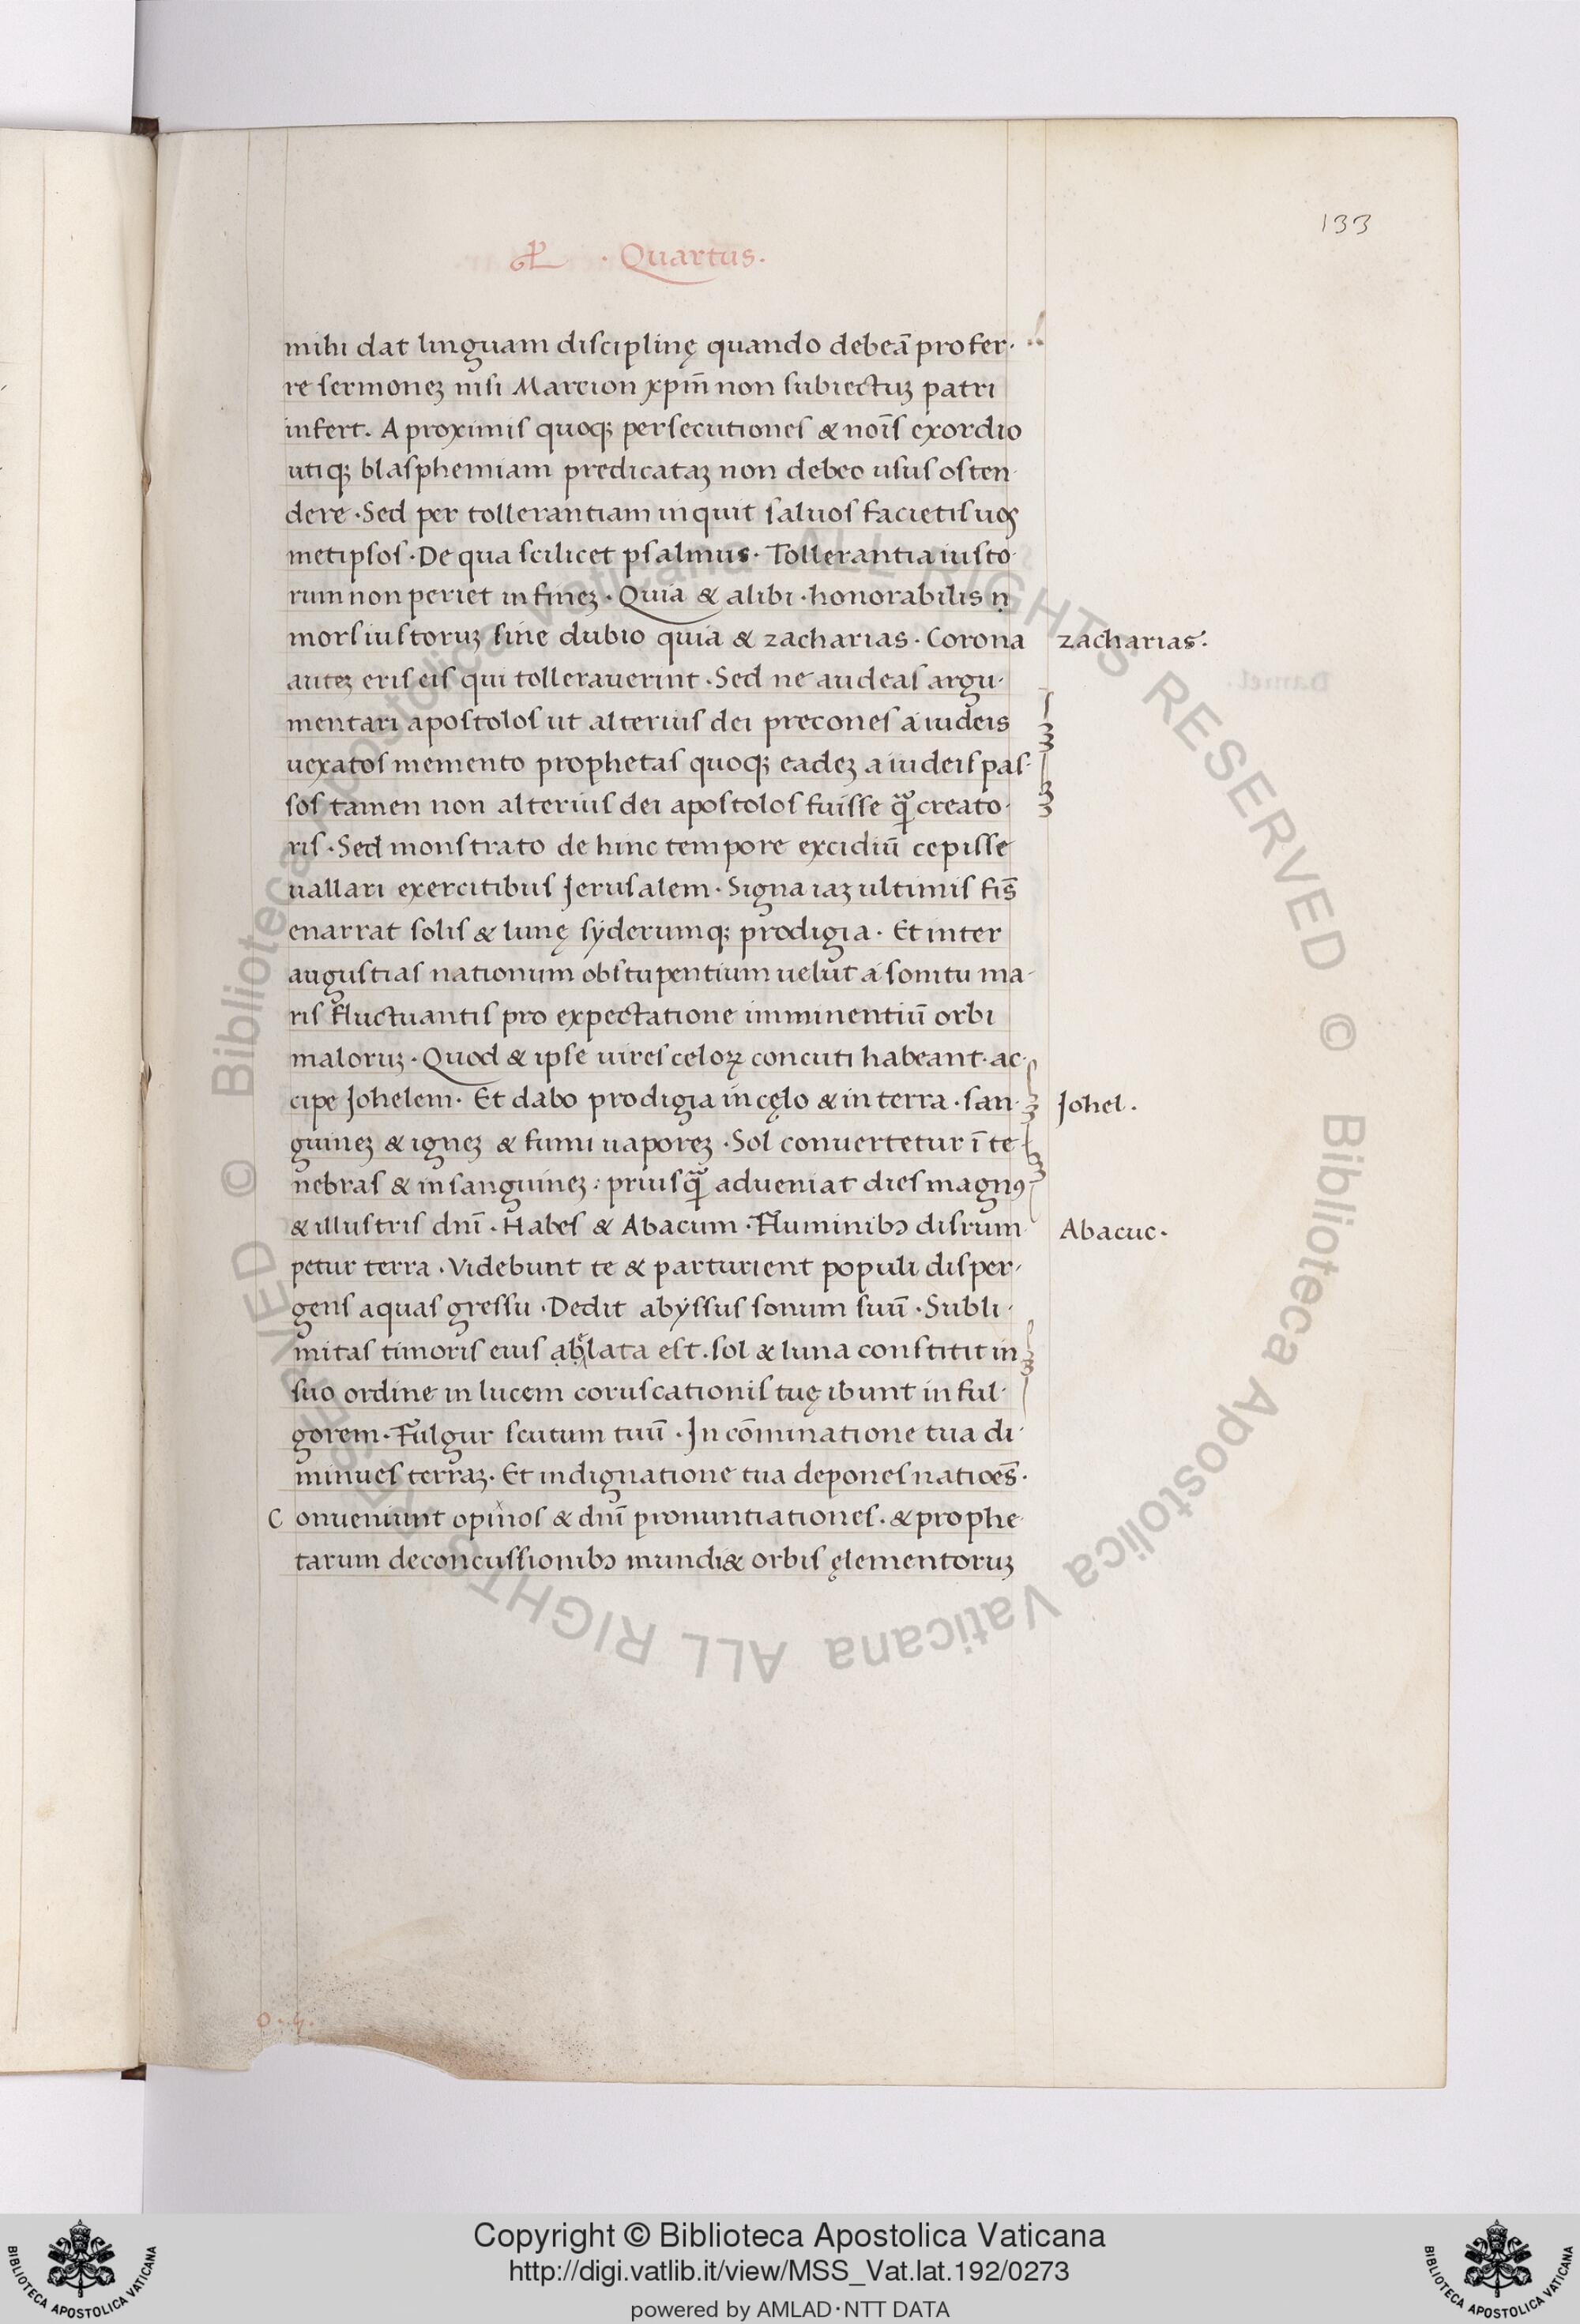 133
· Quartus ·
mihi dat linguam disciplinę quando debeā profer·
re sermoneꝫ nisi Marcion xp̄m̄ non subiectuꝫ patri
infert. A proximis quoqꝫ persecutiones & nōis exordio
utiqꝫ blasphemiam predicataꝫ non debeo usus osten·
dere · Sed per tollerantiam inquit saluos facietis uos
metipsos · De qua scilicet psalmus · Tollerantia iusto·
rum non periet in fineꝫ · Quia & alibi · honorabilis n̄
mors iustoruꝫ sine dubio quia & zacharias · Corona
zacharias:
auteꝫ eris eis qui tollerauerint · Sed ne audeas argu·
mentari apostolos ut alterius dei precones a iudeis
uexatos memento prophetas quoqꝫ eadeꝫ a iudeis pas·
sos tamen non alterius dei apostolos fuisse ꝙ̃ creato·
ris · Sed monstrato de hinc tempore excidiū cepisse
uallari exercitibus Jerusalem · Signa iaꝫ ultimis fis̄
enarrat solis & lunę syderumqꝫ prodigia · Et inter
augustias nationum obstupentium uelut a sonitu ma·
ris fluctuantis pro expectatione imminentiū orbi
maloruꝫ · Quod & ipse uires celoꝝ concuti habeant · ac·
cipe Johelem · Et dabo prodigia in cęlo & in terra · san·
Johel ·
guineꝫ & igneꝫ & fumi uaporeꝫ · Sol conuertetur ī te·
nebras & in sanguineꝫ : priusꝙ̃ adueniat dies magnꝰ
& illustris dnī · Habes & Abacum · Fluminibɔ disrum·
Abacuc ·
petur terra · Videbunt te & parturient populi disper·
gens aquas gressu · Dedit abyssus sonum suū · Subli·
mitas timoris eius ablata est . sol & luna constitit in
suo ordine in lucem coruscationis tuę ibunt in ful·
gorem · Fulgur scutum tuū · In cōminatione tua di·
minues terraꝫ · Et indignatione tua depones natioēs ·
Conueniunt opinos & dnī pronuntiationes · & prophe·
tarum de concussionibɔ mundi & orbis ęlementoruꝫ
Copyright © Biblioteca Apostolica Vaticana
http://digi.vatlib.it/view/MSS_Vat.lat.192/0273
powered by AMLAD·NTT DATA
BIBLIOTECA APOSTOLICA VATICANA
BIBLIOTECA APOSTOLICA VATICANA
© Biblioteca Apostolica Vaticana ALL RIGHTS RESERVED © Biblioteca Apostolica Vaticana ALL RIGHTS RESERVED